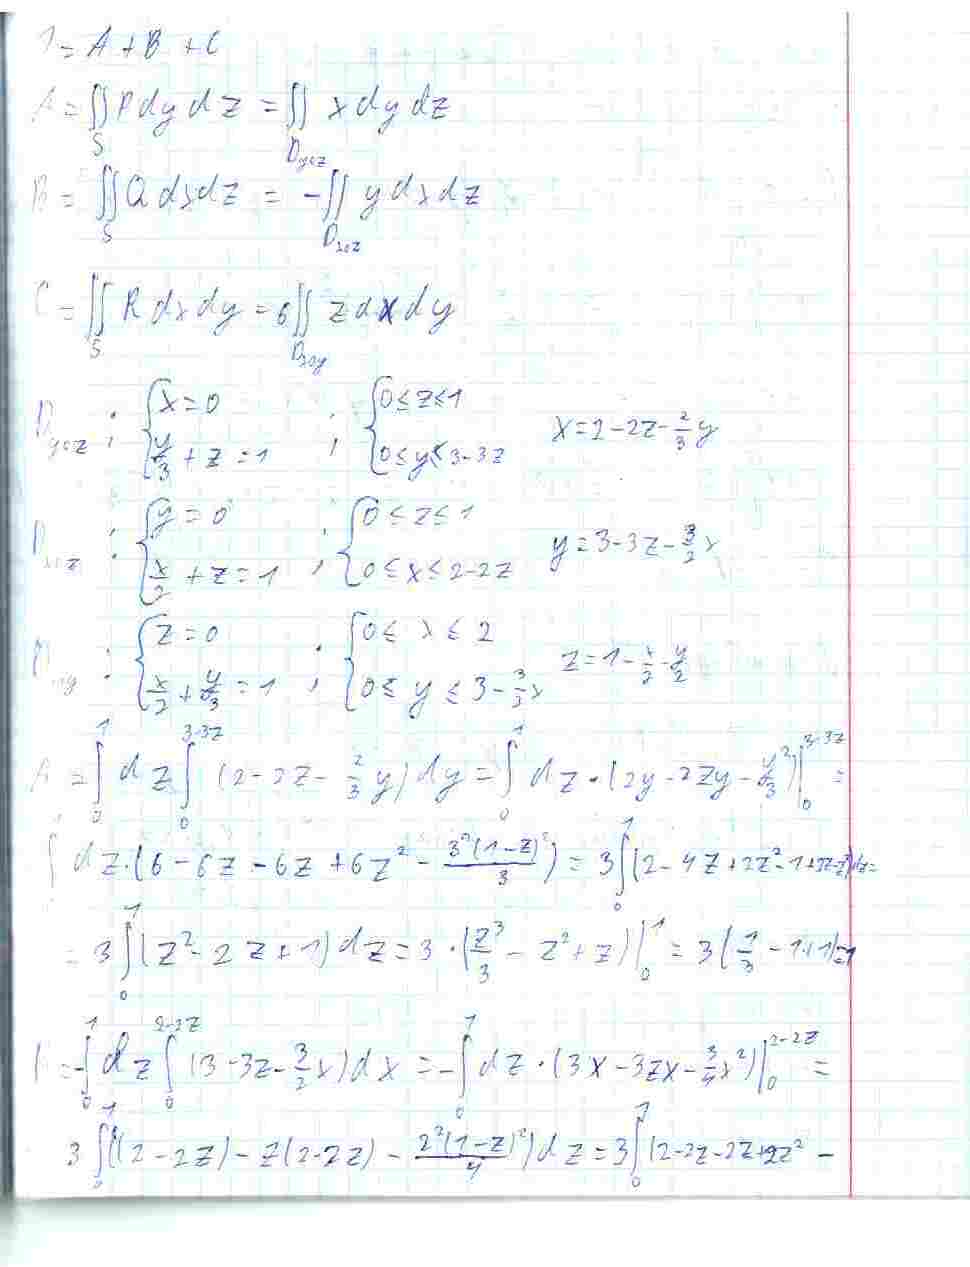 I = A + B + C
A = ∬_S P dy dz = ∬_{D_{yoz}} x dy dz
B = ∬_S Q dx dz = -∬_{D_{xoz}} y dx dz
C = ∬_S R dx dy = 6∬_{D_{xoy}} z dx dy
D_{yoz} : { x = 0 ; y/3 + z = 1 ; { 0 ≤ z ≤ 1 ; 0 ≤ y ≤ 3-3z x = 2 - 2z - 2/3 y
D_{xoz} : { y = 0 ; x/2 + z = 1 ; { 0 ≤ z ≤ 1 ; 0 ≤ x ≤ 2-2z y = 3 - 3z - 3/2 x
D_{xoy} : { z = 0 ; x/2 + y/3 = 1 ; { 0 ≤ x ≤ 2 ; 0 ≤ y ≤ 3 - 3/2 x z = 1 - x/2 - y/2
A = ∫_0^1 dz ∫_0^{3-3z} (2 - 2z - 2/3 y) dy = ∫_0^1 dz · (2y - 2zy - y²/3)|_0^{3-3z} =
∫ dz · (6 - 6z - 6z + 6z² - 3²(1-z)²/3) = 3∫_0^1 (2 - 4z + 2z² - 1 + 2z - z²) dz =
= 3∫_0^1 (z² - 2z + 1) dz = 3 · (z³/3 - z² + z)|_0^1 = 3(1/3 - 1 + 1) = 1
B = -∫_0^1 dz ∫_0^{2-2z} (3 - 3z - 3/2 x) dx = -∫_0^1 dz · (3x - 3zx - 3/4 x²)|_0^{2-2z} =
3∫_0^1 ((2 - 2z) - z(2-2z) - 2²(1-z)²/4) dz = 3∫_0^1 (2 - 2z - 2z + 2z² -